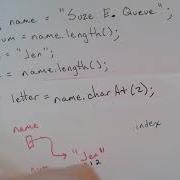 name = "Suze E. Queue";
um = name.length();
= "Jen";
= name.length();
letter = name.charAt(2);
name
index
"Jen"
12
num